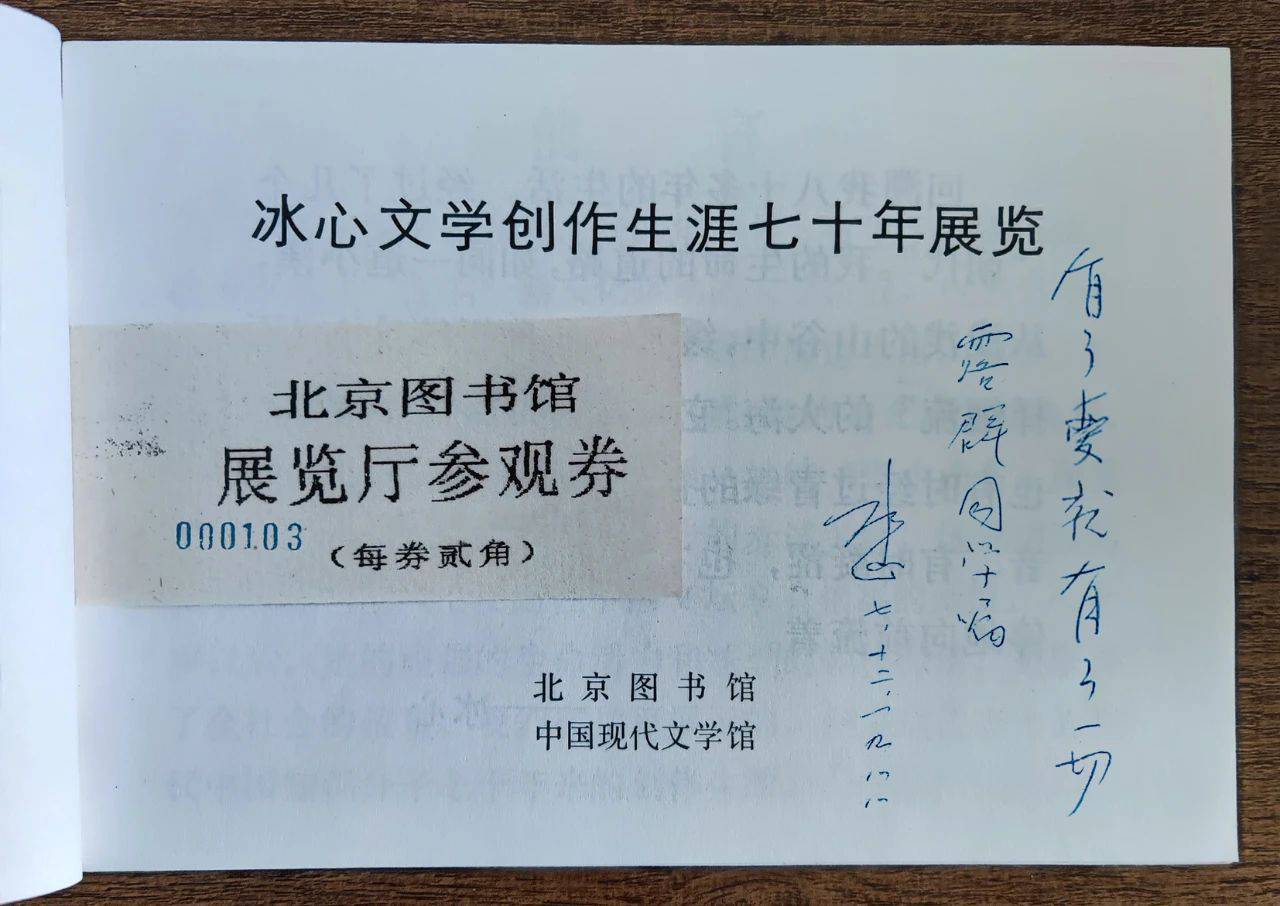 冰心文学创作生涯七十年展览
北京图书馆
展览厅参观券
000103
（每券贰角）
北京图书馆
中国现代文学馆
有了爱就有了一切
露群同学嘱
七、十二、一九八八